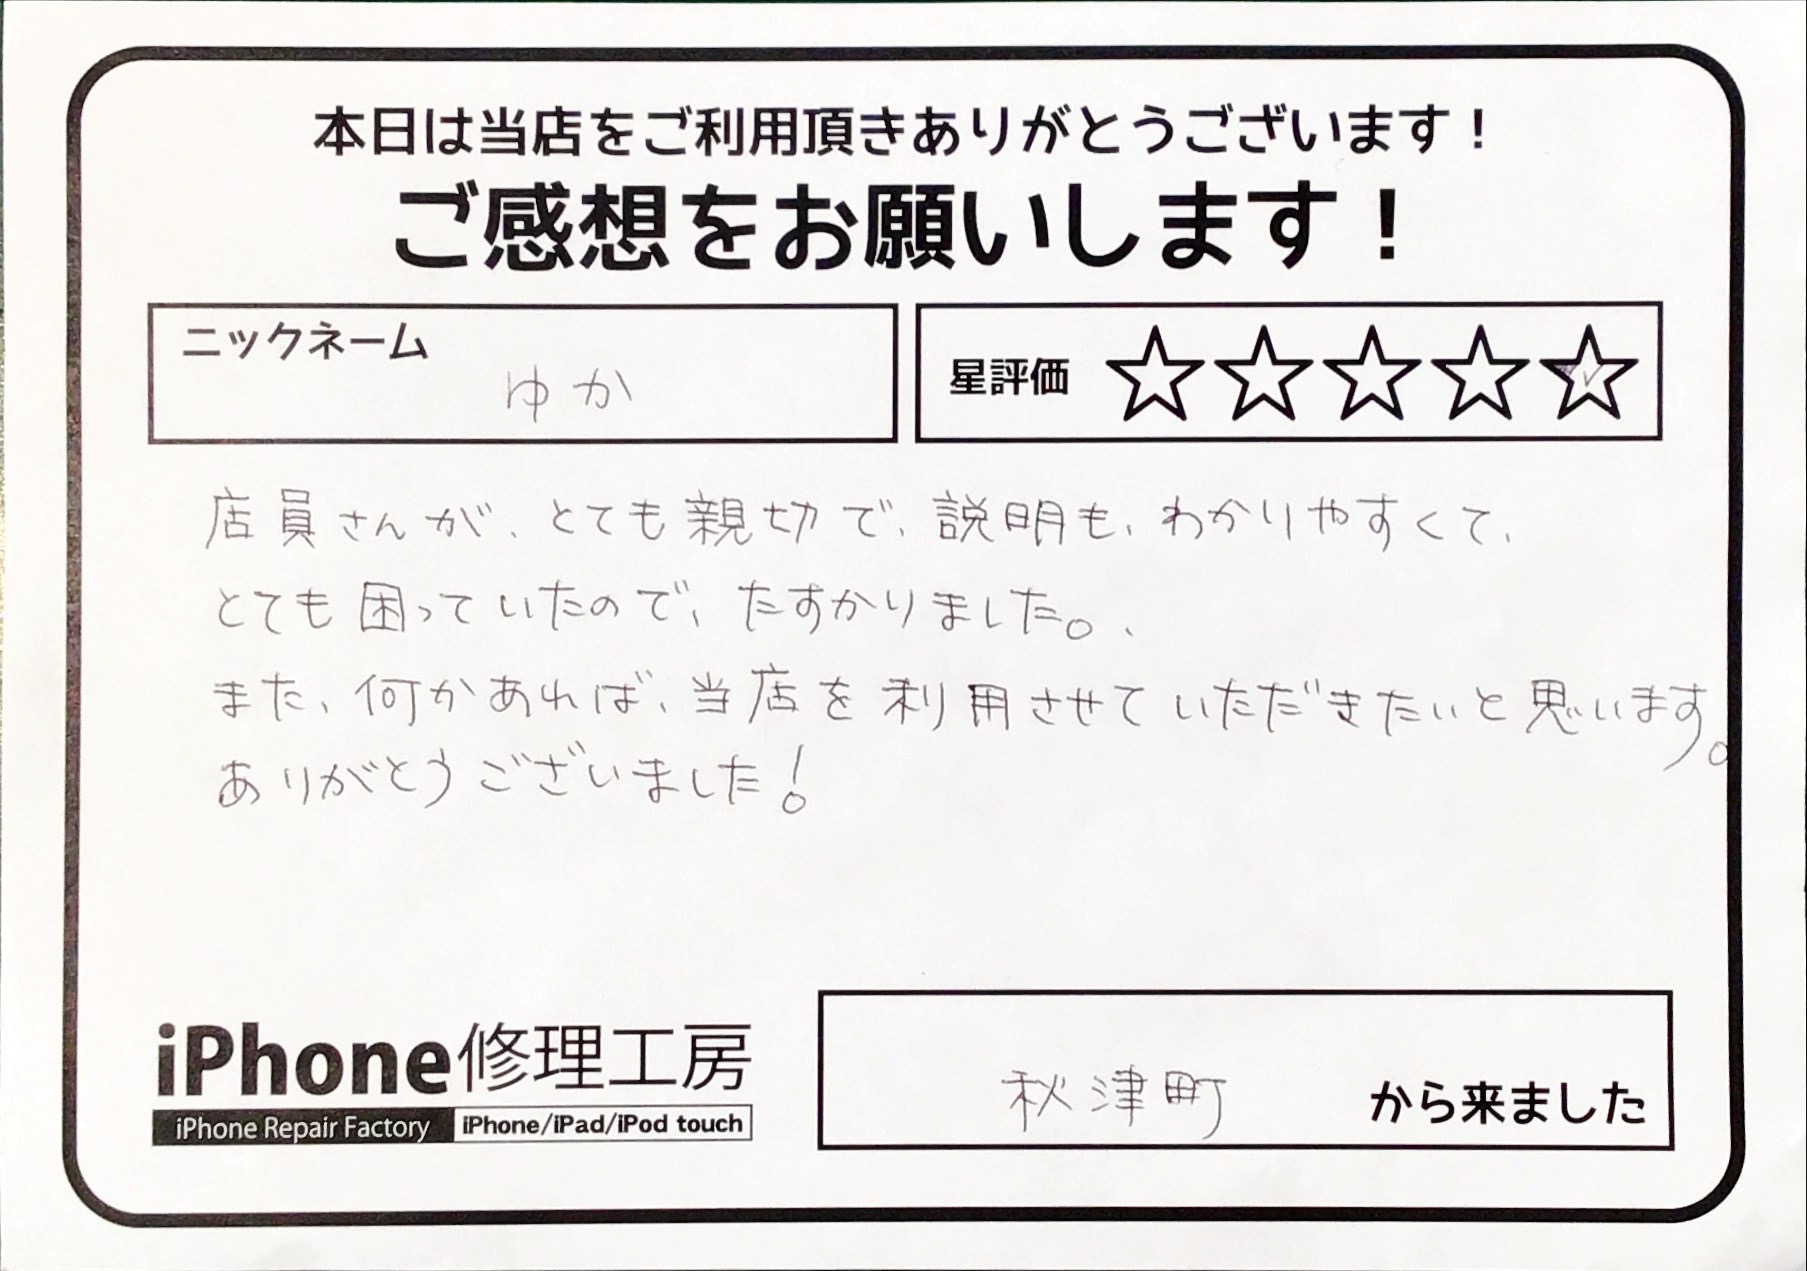 本日は当店をご利用頂きありがとうございます！
ご感想をお願いします！
ニックネーム
ゆか
星評価 ☆☆☆☆☆
店員さんが、とても親切で、説明も、わかりやすくて、
とても困っていたので、たすかりました。、
また、何かあれば、当店を利用させていただきたいと思います。
ありがとうございました！
iPhone修理工房
iPhone Repair Factory iPhone/iPad/iPod touch
秋津町 から来ました